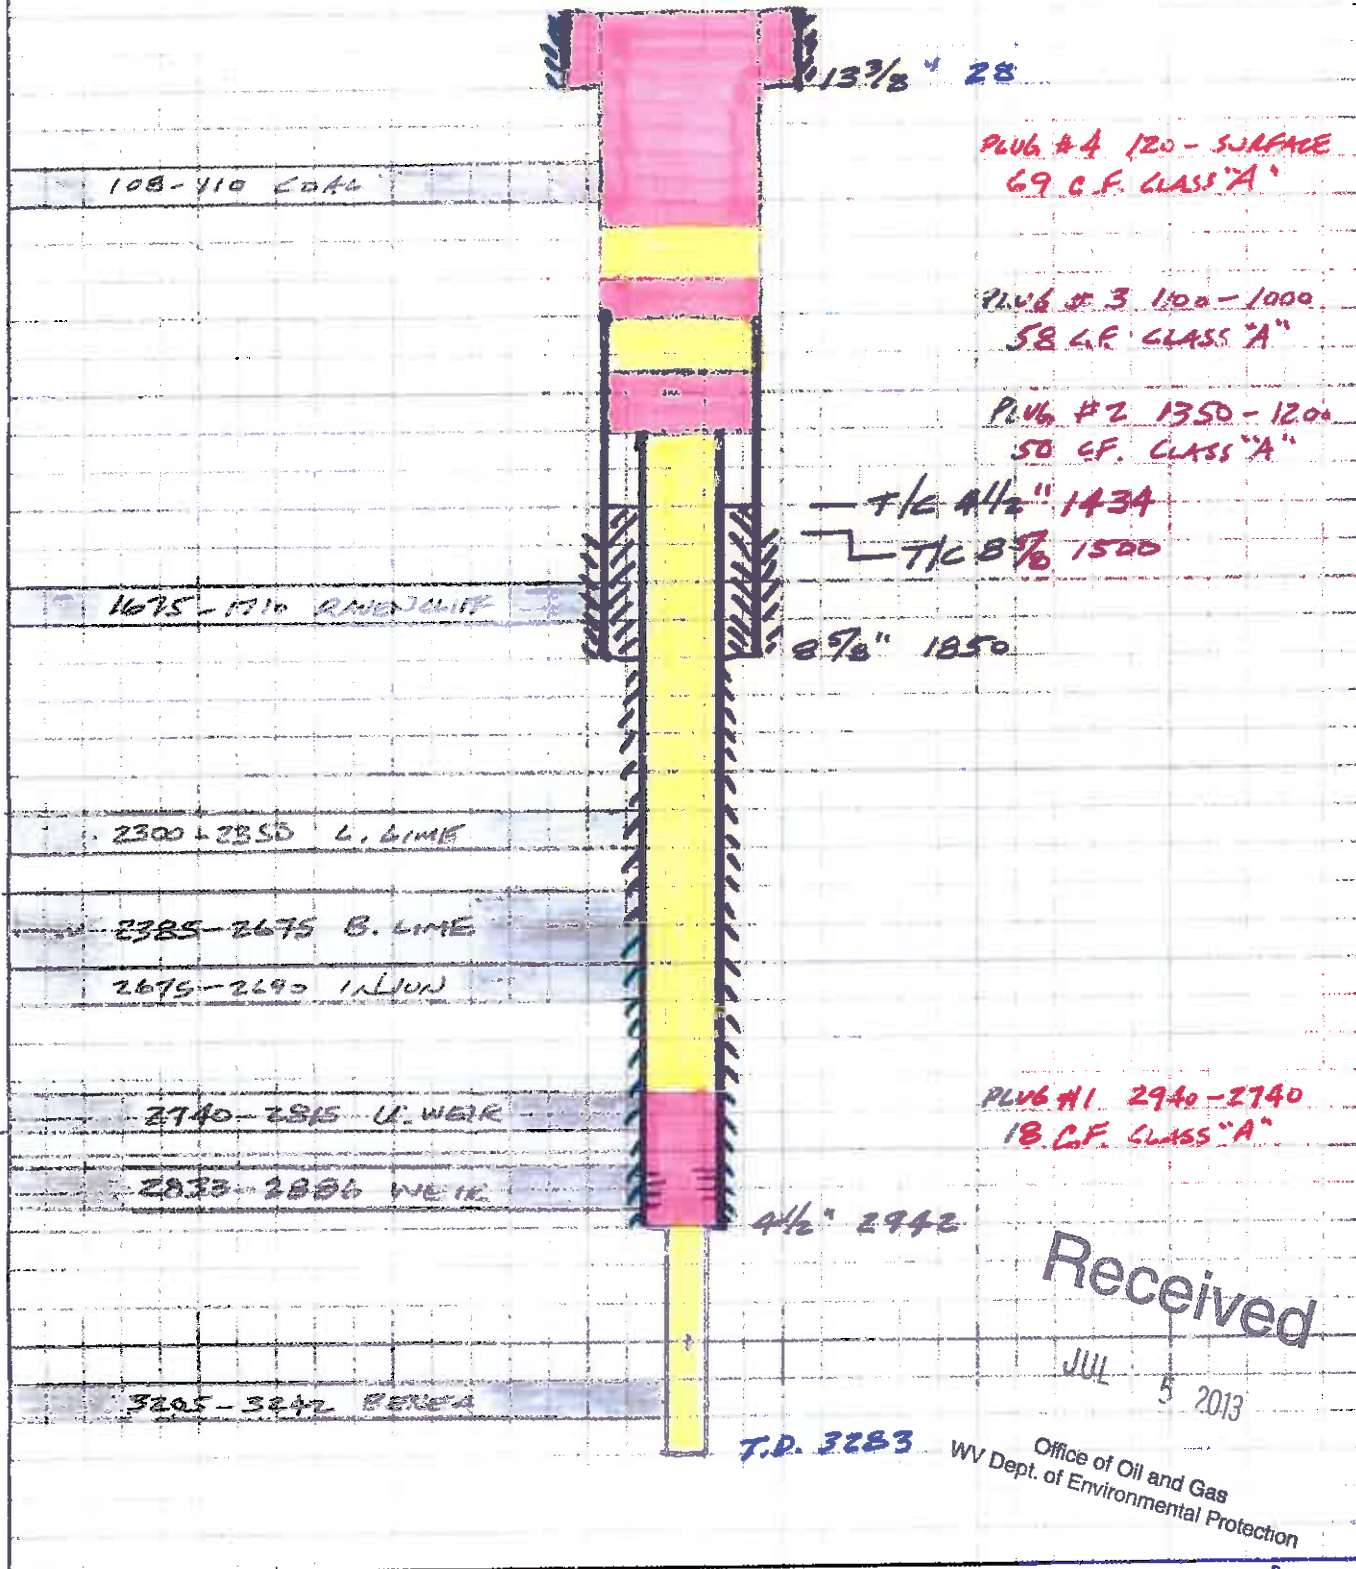 13 3/8" 28
PLUG #4 120 - SURFACE
69 C.F. CLASS "A"
108-110 COAL
PLUG #3 1100-1000
58 C.F. CLASS "A"
PLUG #2 1350-1200
50 CF. CLASS "A"
T/C 4 1/2" 1434
T/C 8 5/8 1500
1675-1710 RAVENCLIFF
8 5/8" 1850
2300-2350 L. LIME
2385-2675 B. LIME
2675-2690 INJUN
2740-2815 U. WEIR
PLUG #1 2940-2740
18 C.F. CLASS "A"
2833-2886 WEIR
4 1/2" 2942
Received
JUL 5 2013
3205-3242 BEREA
T.D. 3283
Office of Oil and Gas
WV Dept. of Environmental Protection